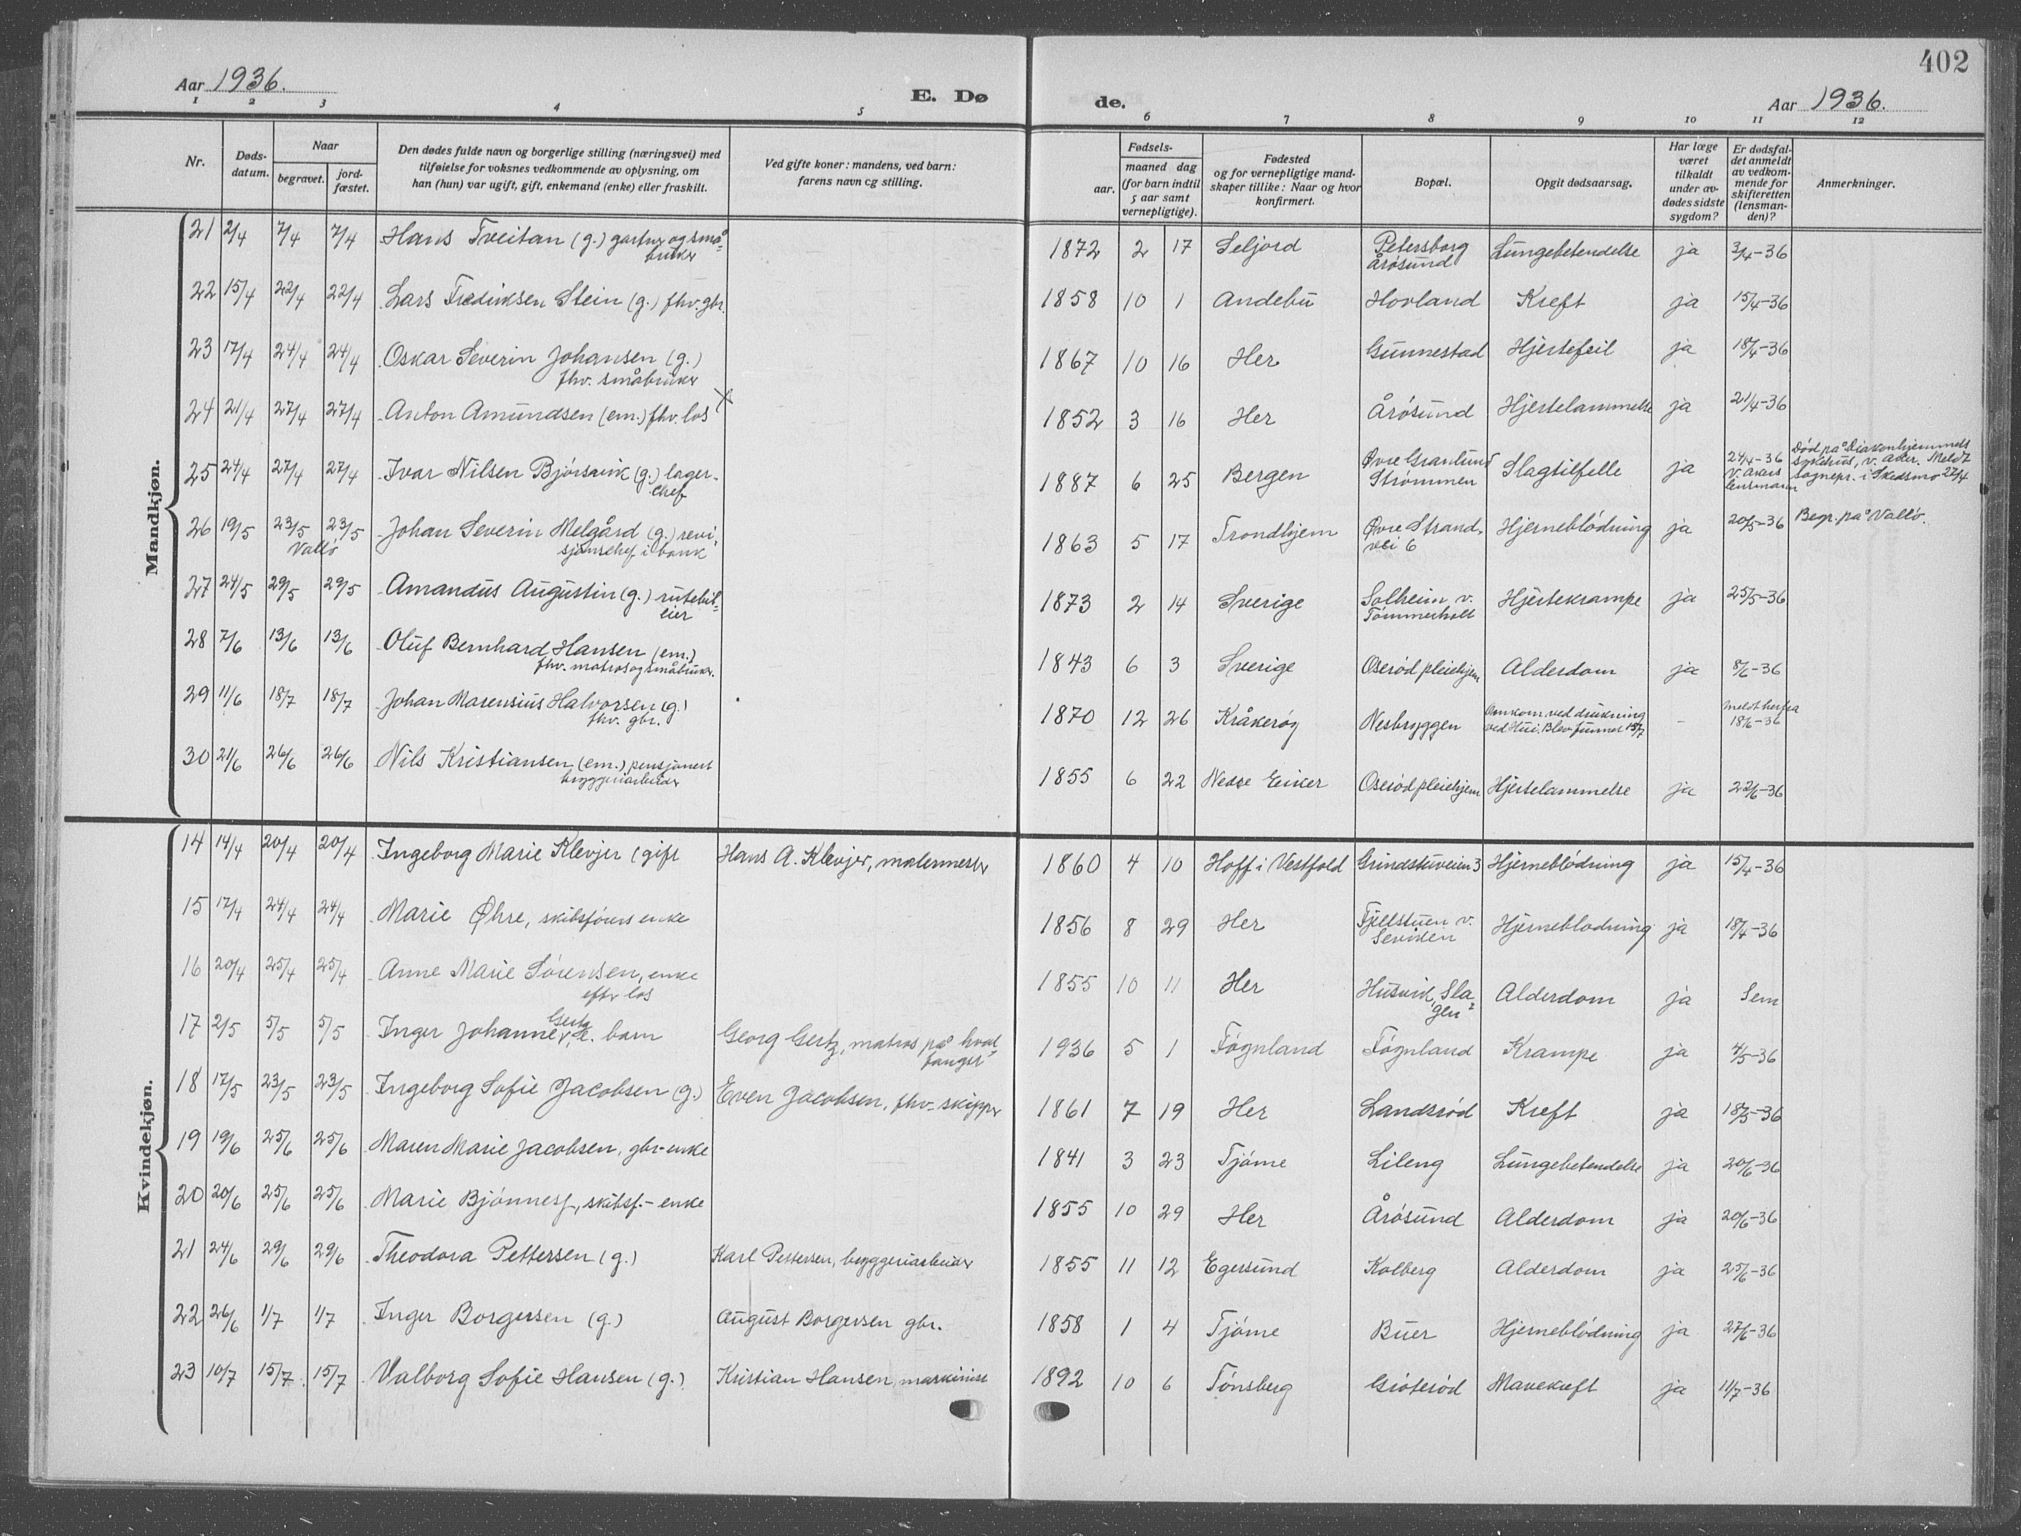 402
Aar 1936.
E. Dø
de.
Aar 1936.
1 2 3 4 5 6 7 8 9 10 11 12
Nr.
Døds-
datum.
Naar
begravet.
jord-
fæstet.
Den dødes fulde navn og borgerlige stilling (næringsvei) med
tilføielse for voksnes vedkommende av oplysning, om
han (hun) var ugift, gift, enkemand (enke) eller fraskilt.
Ved gifte koner: mandens, ved barn:
farens navn og stilling.
Fødsels-
aar.
maaned dag
(for barn indtil
5 aar samt
vernepligtige).
Fødested
og for vernepligtige mand-
skaper tillike: Naar og hvor
konfirmert.
Bopæl.
Opgit dødsaarsag.
Har læge
været
tilkaldt
under av-
dødes sidste
sygdom?
Er dødsfal-
det anmeldt
av vedkom-
mende for
skifteretten
(lensman-
den)?
Anmerkninger.
Mandkjøn.
21 2/4 7/4 7/4 Hans Tveitan (g.) gartner og små-
bruker
1872 2 17 Seljord Petersborg
Årøsund
Lungebetendelse ja 3/4-36
22 15/4 22/4 22/4 Lars Fredriksen Stein (g.) fhv. gbr. 1858 10 1 Andebu Hovland Kreft ja 15/4-36
23 17/4 24/4 24/4 Oskar Severin Johansen (g.)
fhv. småbruker
1867 10 16 Her Gunnestad Hjertefeil ja 18/4-36
24 21/4 27/4 27/4 Anton Amundsen (em.) fhv. los X 1852 3 16 Her Årøsund Hjertelammelse ja 21/4-36
25 24/4 27/4 27/4 Ivar Nilsen Bjørsvik (g.) lager-
chef
1887 6 25 Bergen Øvre Granlund
Strømmen
Slagtilfelle ja 24/4-36
lensmann
Død på Diakonhjemmets
Sykehus, v. Aker. Meldt
sognepr. i Skedsmo 27/4
26 19/5 23/5 23/5 Johan Severin Melgård (g.) revi-
Vallø sjonschef i bank
1863 5 17 Trondhjem Øvre Strand-
vei 6
Hjerneblødning ja 20/5-36 Begr. på Vallø.
27 24/5 29/5 29/5 Amandus Augustin (g.) rutebil-
eier
1873 2 14 Sverige Solheim v.
Tømmerholt
Hjertekrampe ja 25/5-36
28 7/6 13/6 13/6 Oluf Bernhard Hansen (em.)
fhv. matros og småbruker.
1843 6 3 Sverige Oserød pleiehjem Alderdom ja 8/6-36
29 11/6 18/7 18/7 Johan Marensius Halvorsen (g.)
fhv. gbr.
1870 12 26 Kråkerøy Nesbryggen Omkom. ved drukning
ved Hui. Blev funnet 15/7
- meldt herfra
18/6-36
30 21/6 26/6 26/6 Nils Kristiansen (em.) pensjonert
bryggeriarbeider
1855 6 22 Nedre Eiker Oserød pleiehjem Hjertelammelse ja 22/6-36
Kvindekjøn.
14 14/4 20/4 20/4 Ingeborg Marie Klevjer (gift Hans A. Klevjer, malermester 1860 4 10 Hoff i Vestfold Grindstuveien 3 Hjerneblødning ja 15/4-36
15 17/4 24/4 24/4 Marie Øhre, skibsførers enke 1856 8 29 Her Fjellstuen v.
Hjerneblødning ja 18/4-36
16 20/4 25/4 25/4 Anne Marie Sørensen, enke
efter los
1855 10 11 Her Husvik, Sla-
gen
Alderdom ja Sem
17 2/5 5/5 5/5 Inger Johanne Gertz barn Georg Gertz, matros på hval
fangst
1936 5 1 Føgnland Føgnland Krampe ja 4/5-36
18 17/5 23/5 23/5 Ingeborg Sofie Jacobsen (g.) Even Jacobsen, fhv. skipper 1861 7 19 Her Landsrød Kreft ja 18/5-36
19 19/6 25/6 25/6 Maren Marie Jacobsen, gbr-enke 1841 3 23 Tjøme Lileng Lungebetendelse ja 20/6-36
20 20/6 25/6 25/6 Marie Bjønness, skibsf.-enke 1855 10 29 Her Årøsund Alderdom ja 20/6-36
21 24/6 29/6 29/6 Theodora Pettersen (g.) Karl Pettersen, bryggeriarbeider 1855 11 12 Egersund Kolberg Alderdom ja 25/6-36
22 26/6 1/7 1/7 Inger Borgersen (g.) August Borgersen gbr. 1858 1 4 Tjøme Buer Hjerneblødning ja 27/6-36
23 10/7 15/7 15/7 Valborg Sofie Hansen (g.) Kristian Hansen, maskinist 1892 10 6 Tønsberg Gioterød Mavekreft ja 11/7-36